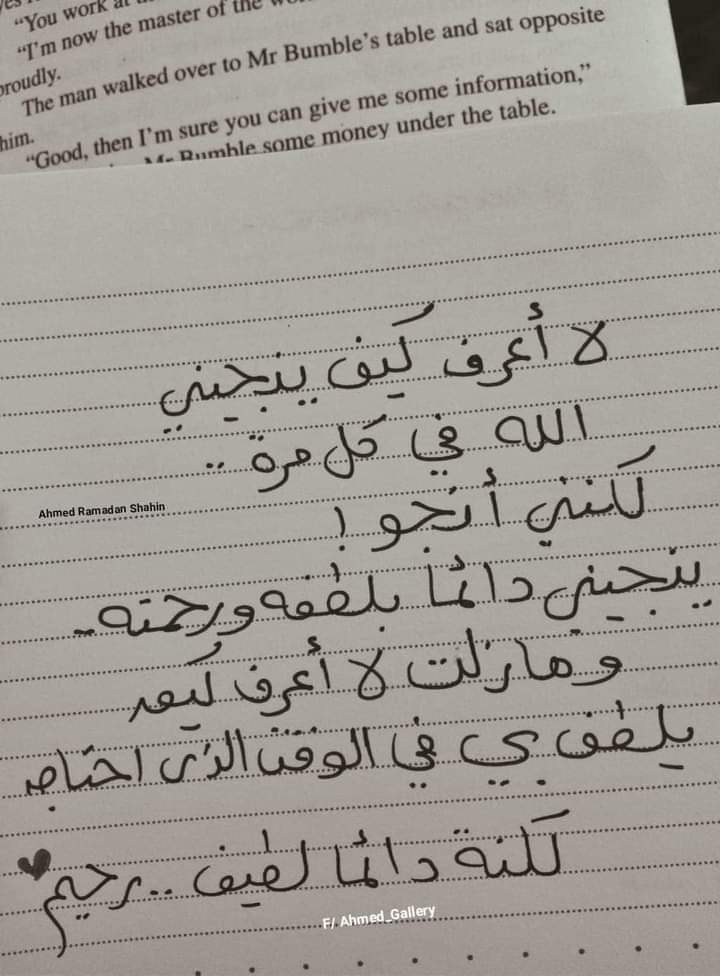 “You work at
“I’m now the master of the
proudly.
The man walked over to Mr Bumble’s table and sat opposite
him.
“Good, then I’m sure you can give me some information,”
Mr Bumble some money under the table.
لا أعرف كيف ينجيني
الله في كل مرة ..
Ahmed Ramadan Shahin
لكنني أنجو !
ينجيني دائمًا بلطفه ورحمته
وما زلت لا أعرف كيف
يلطف بي في الوقت الذي احتاج
لكنة دائما لطيف .. رحيم
F/. Ahmed_Gallery